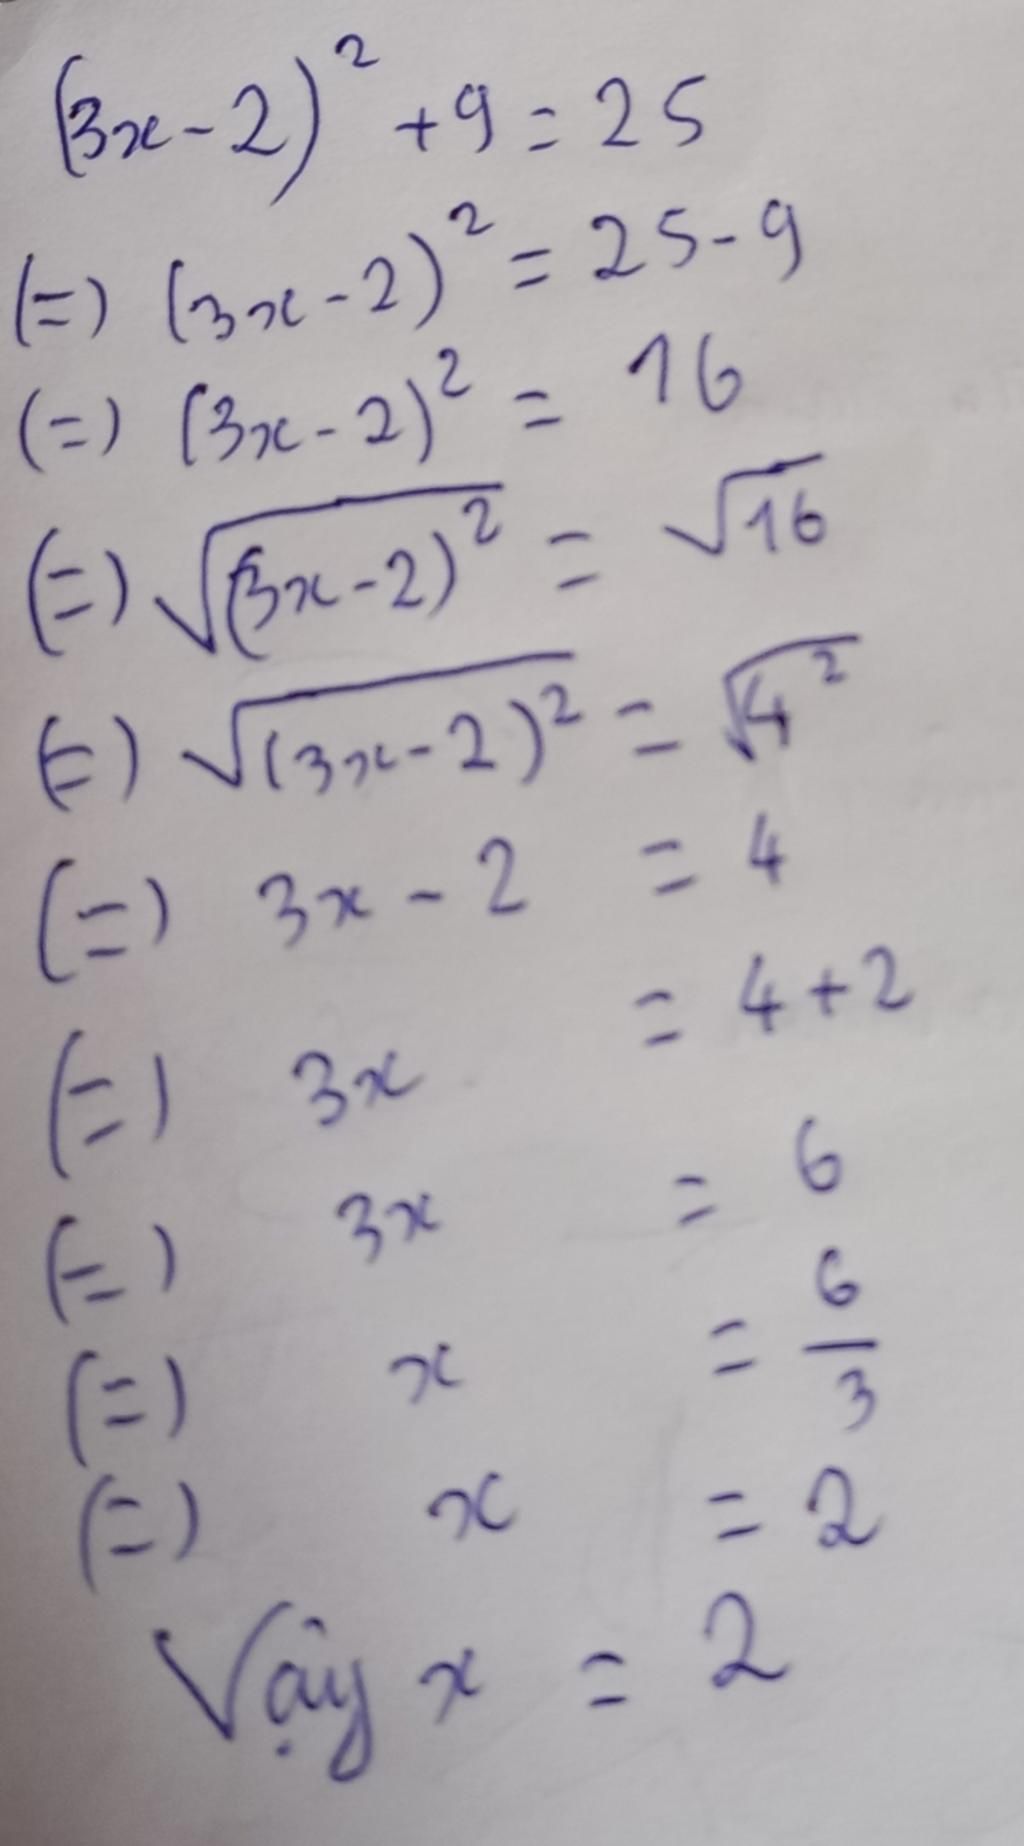 (3x-2)² +9 = 25
(=) (3x-2)² = 25-9
(=) (3x-2)² = 16
(=) √(3x-2)² = √16
(=) √(3x-2)² = √4²
(=) 3x - 2 = 4
(=) 3x = 4+2
(=) 3x = 6
(=) x = 6/3
(=) x = 2
Vậy x = 2